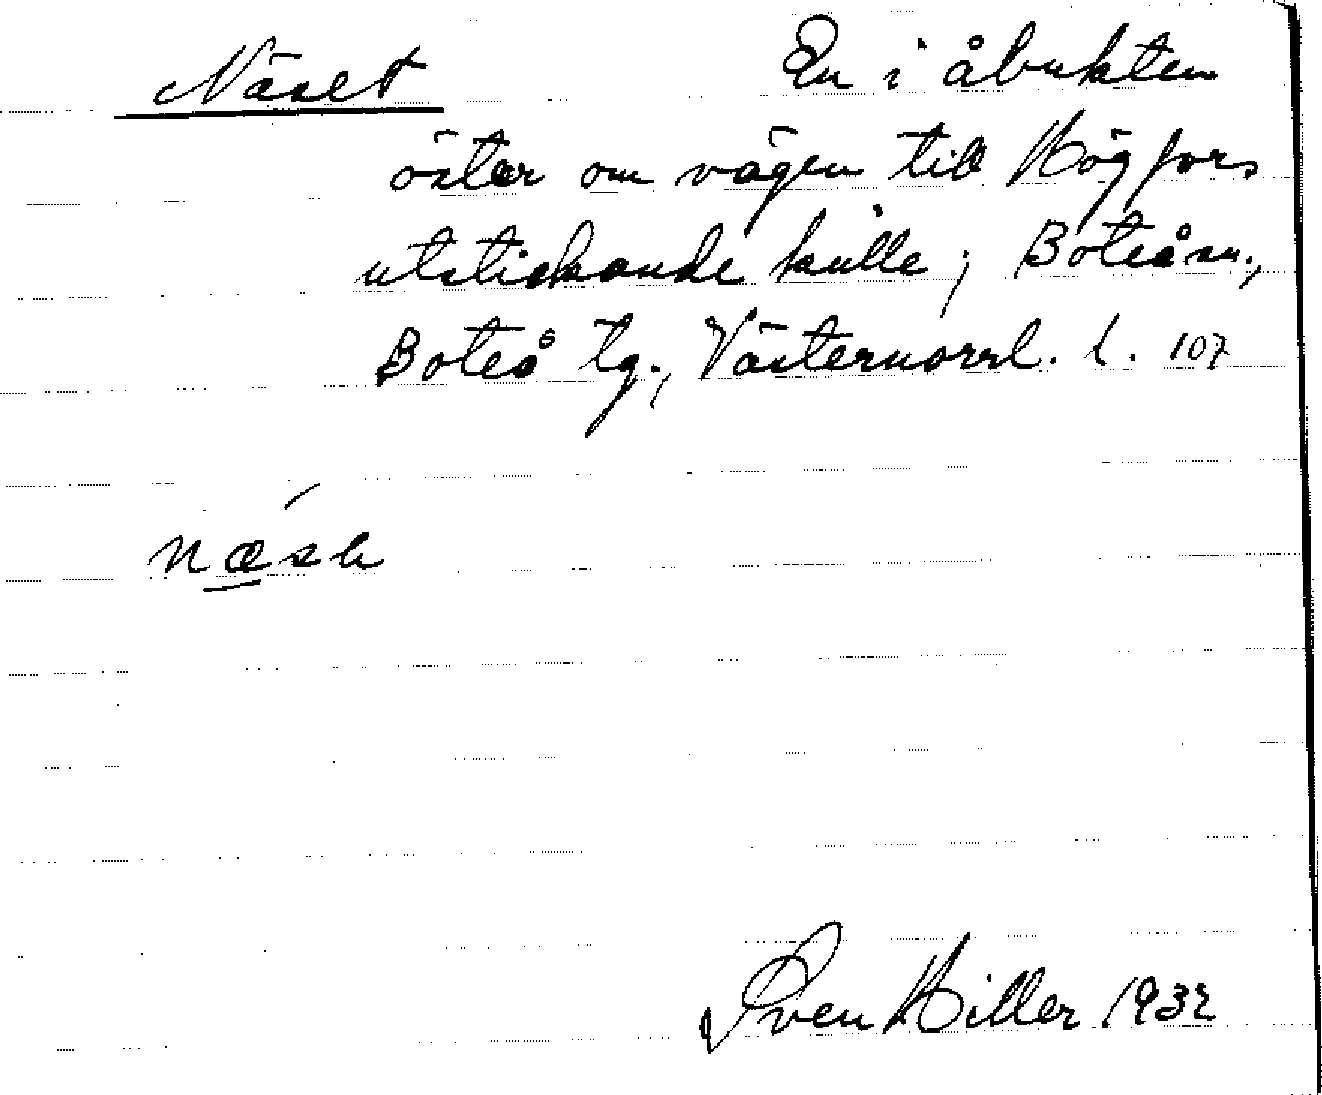 Näset En i åbukten
öster om vägen till Högfors
utstickande kulle; Boteå sn.,
Boteå tg., Västernorrl. l. 107
nǽsɩ
Sven Hiller 1932